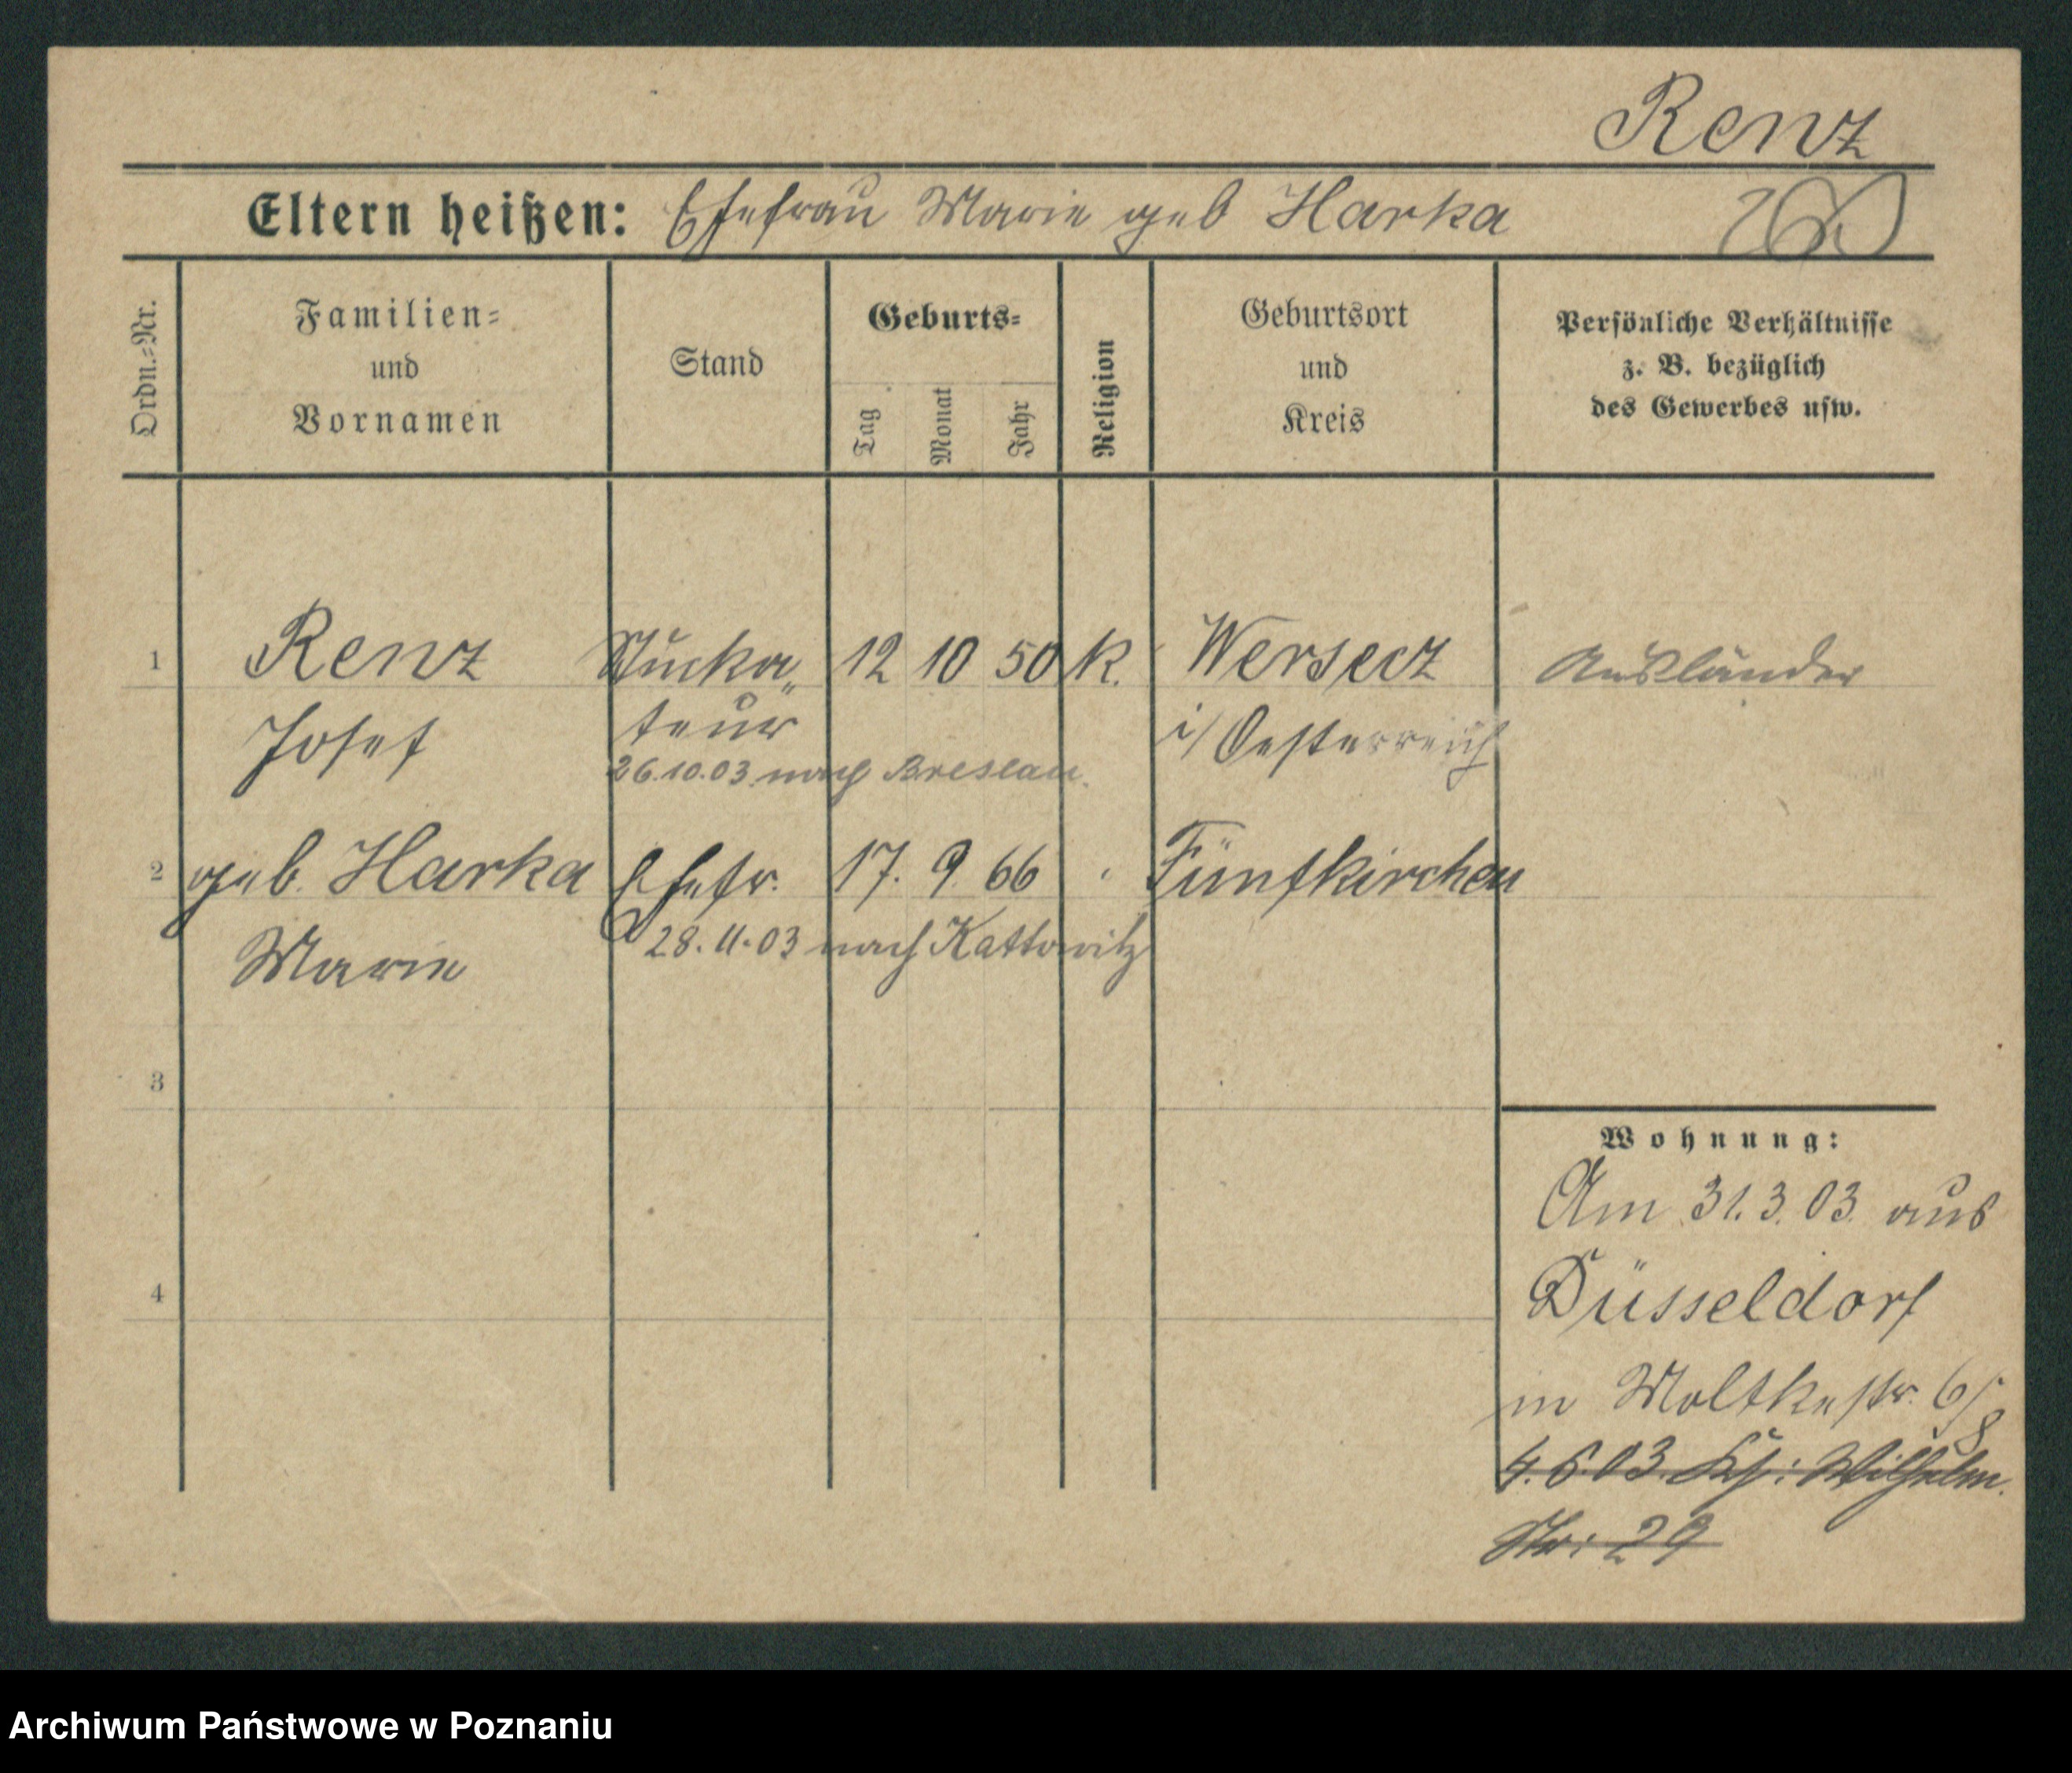 Renz
Eltern heißen: Ehefrau Marie geb Harka
Ordn.=Nr.
Familien=
und
Vornamen
Stand
Geburts=
Tag
Monat
Jahr
Religion
Geburtsort
und
Kreis
Persönliche Verhältnisse
z. B. bezüglich
des Gewerbes usw.
1 Renz Stucka„ 12 10 50 K. Wersecz Ausländer
Josef teur i/ Oesterreich
26.10.03 nach Breslau.
2 geb. Harka Ehefr. 17. 9. 66 " Fünfkirchen
28.11.03 nach Kattowitz
Marie
3
Wohnung:
Am 31.3.03. aus
Düsseldorf
4
in Moltkestr. 6/8
4.6.03. Wilhelm.
Str: 29
Archiwum Państwowe w Poznaniu